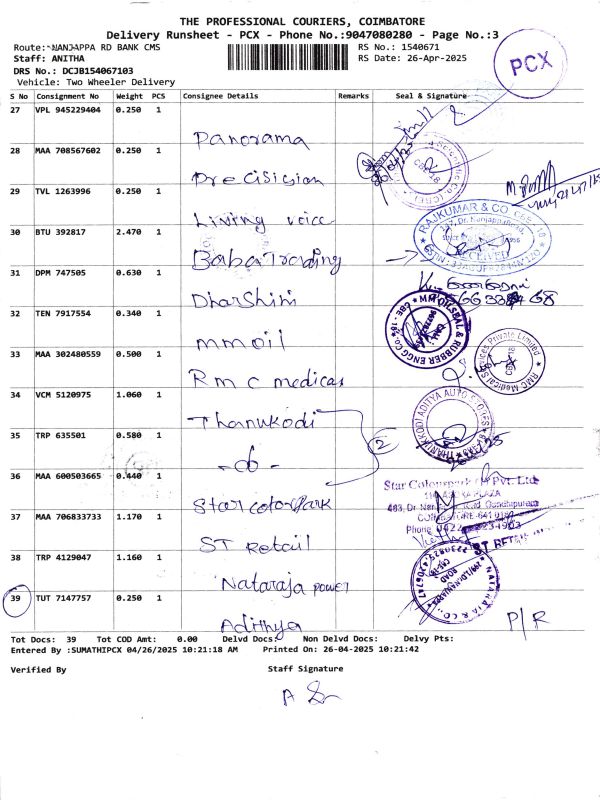 THE PROFESSIONAL COURIERS, COIMBATORE
Delivery Runsheet - PCX - Phone No.:9047080280 - Page No.:3
Route: NANJAPPA RD BANK CMS
RS No.: 1540671
Staff: ANITHA
RS Date: 26-Apr-2025
DRS No.: DCJB154067103
Vehicle: Two Wheeler Delivery
PCX
S No Consignment No Weight PCS Consignee Details Remarks Seal & Signature
27 VPL 945229404 0.250 1
Panorama
28 MAA 708567602 0.250 1
Precisision
29 TVL 1263996 0.250 1
Living voice
30 BTU 392817 2.470 1
Baba Trading
RAJKUMAR & CO.
31 DPM 747505 0.630 1
Dharshini
32 TEN 7917554 0.340 1
mm oil
MM OIL SEAL & RUBBER ENGG CO.
33 MAA 302480559 0.500 1
Rmc medical
RMC Medical Services Private Limited
34 VCM 5120975 1.060 1
Thanukodi
35 TRP 635501 0.580 1
-do-
2
36 MAA 600503665 0.440 1
Star colorpark
Phone 0422
37 MAA 706833733 1.170 1
ST Retail
ST RETAIL
38 TRP 4129047 1.160 1
Nataraja power
39 TUT 7147757 0.250 1
Adithya
P/R
Tot Docs: 39 Tot COD Amt: 0.00 Delvd Docs: Non Delvd Docs: Delvy Pts:
Entered By :SUMATHIPCX 04/26/2025 10:21:18 AM Printed On: 26-04-2025 10:21:42
Verified By
Staff Signature